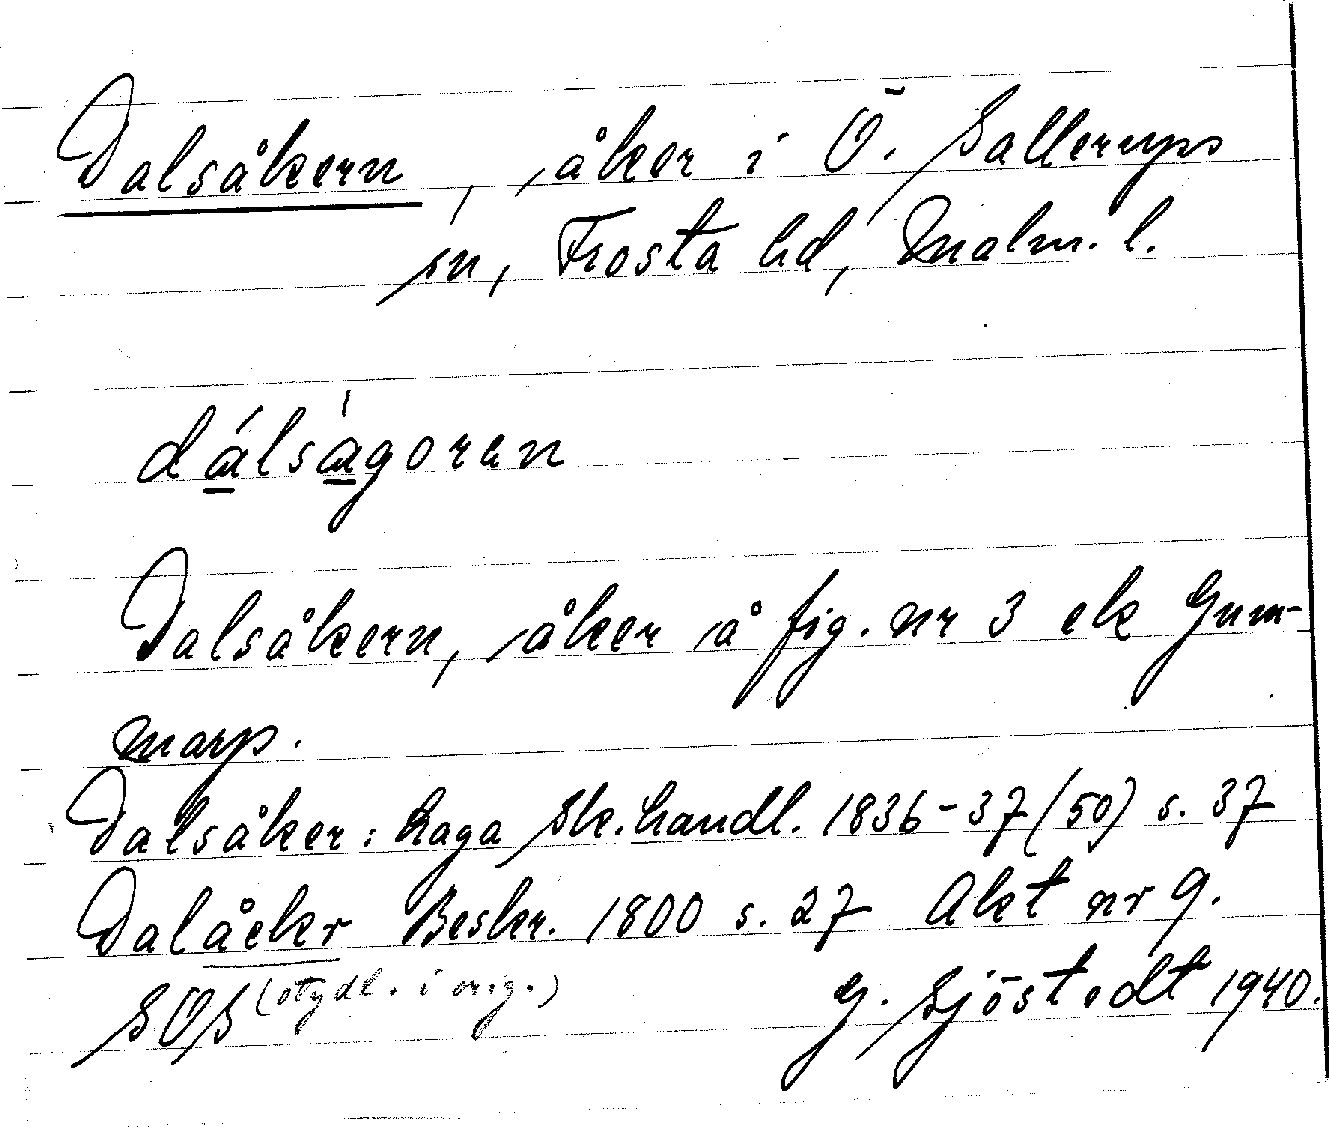 Dalsåkern, åker i Ö. Sallerups
sn, Frosta hd, Malm. l.
dálsàgoran
Dalsåkern, åker å fig. nr 3 ek Gum-
marp.
Dalsåker: Laga Sk.handl. 1836-37 (50) s. 37
Dalåckr Beskr. 1800 s. 27 Akt nr 9.
(otydl. i orig.)
G. Sjöstedt 1940.